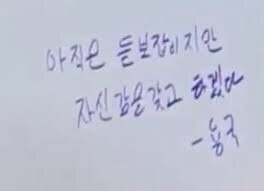 아직은 듣보잡이지만
자신감을 갖고 하겠다
-용국